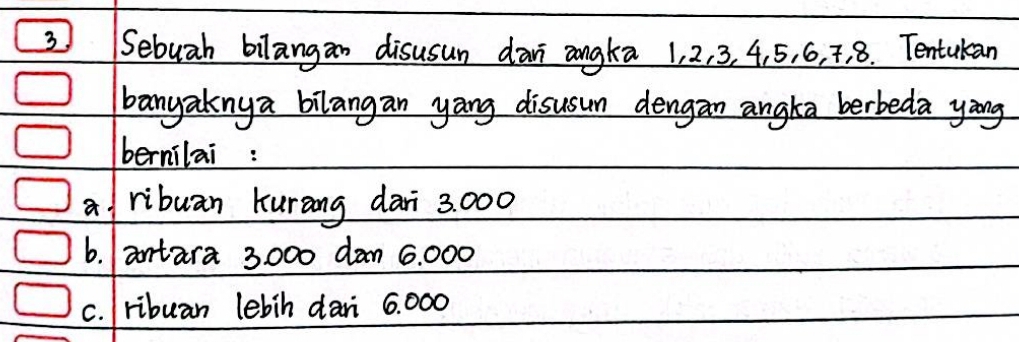 3. Sebuah bilangan disusun dari angka 1,2,3,4,5,6,7,8. Tentukan
banyaknya bilangan yang disusun dengan angka berbeda yang
bernilai :
a. ribuan kurang dari 3.000
b. antara 3.000 dan 6.000
c. ribuan lebih dari 6.000